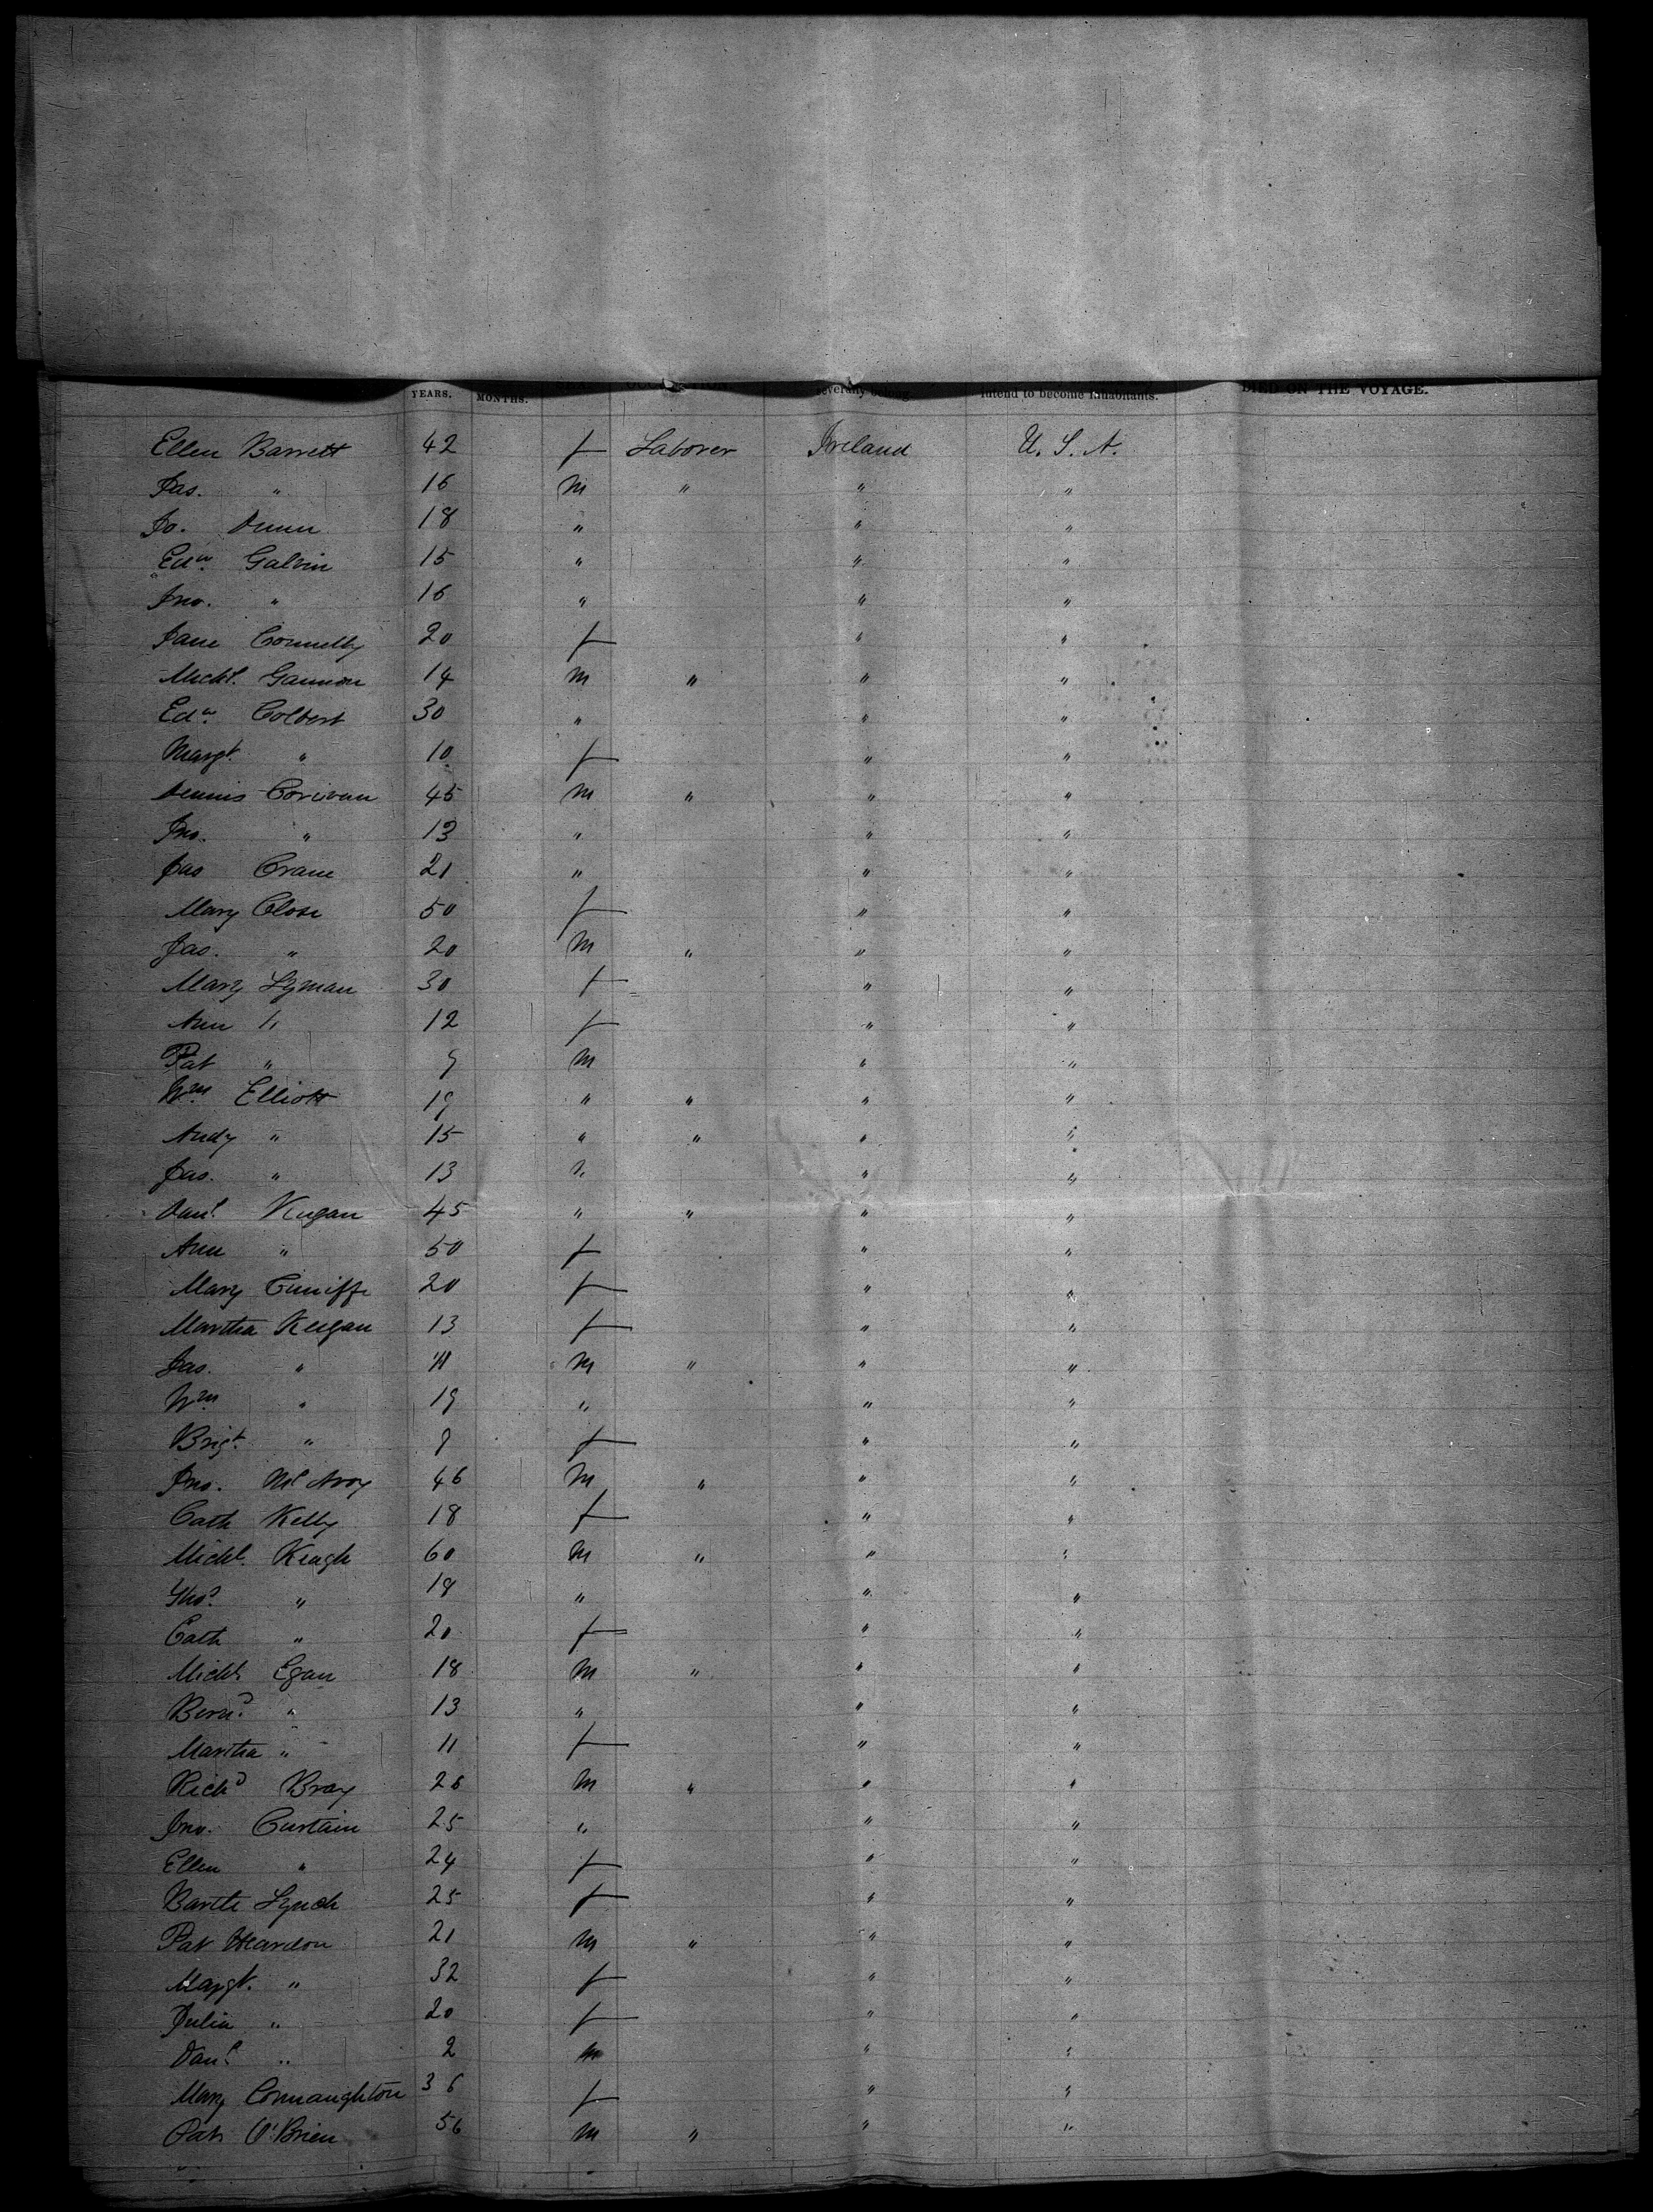 YEARS. MONTHS. severally belong. intend to become inhabitants. DIED ON THE VOYAGE.
Ellen Barrett 42 f Laborer Ireland U. S. A.
Jas. " 16 m " " "
Jo. Dunn 18 " " "
Edw. Galvin 15 " " "
Jno. " 16 " " "
Jane Connelly 20 f " "
Michl. Gannon 14 m " " "
Edw. Colbert 30 " " "
Margt. " 10 f " "
Dennis Corivan 45 m " " "
Jno. " 13 " " "
Jas Crane 21 " " "
Mary Close 50 f " "
Jas. " 20 m " " "
Mary Lyman 30 f " "
Ann " 12 f " "
Pat " 9 m " "
Wm Elliott 19 " " " "
Andy " 15 " " " "
Jas. " 13 " " "
Danl. Keegan 45 " " " "
Ann " 50 f " "
Mary Cuniffe 20 f " "
Martha Keegan 13 f " "
Jas. " 11 m " " "
Wm " 19 " " "
Brigt. " 9 f " "
Jno. McAvoy 46 m " " "
Cath Kelly 18 f " "
Michl. Keagh 60 m " " "
Thos. " 18 " " "
Cath " 20 f " "
Michl Egan 18 m " " "
Bernd. " 13 " " "
Martha " 11 f " "
Richd Bray 26 m " " "
Jno. Curtain 25 " " "
Ellen " 24 f " "
Barth Lynch 25 f " "
Pat Heardon 21 m " " "
Margt. " 32 f " "
Julia " 20 f " "
Danl. " 2 m " "
Mary Connaughton 36 f " "
Pat O'Brien 56 m " " "